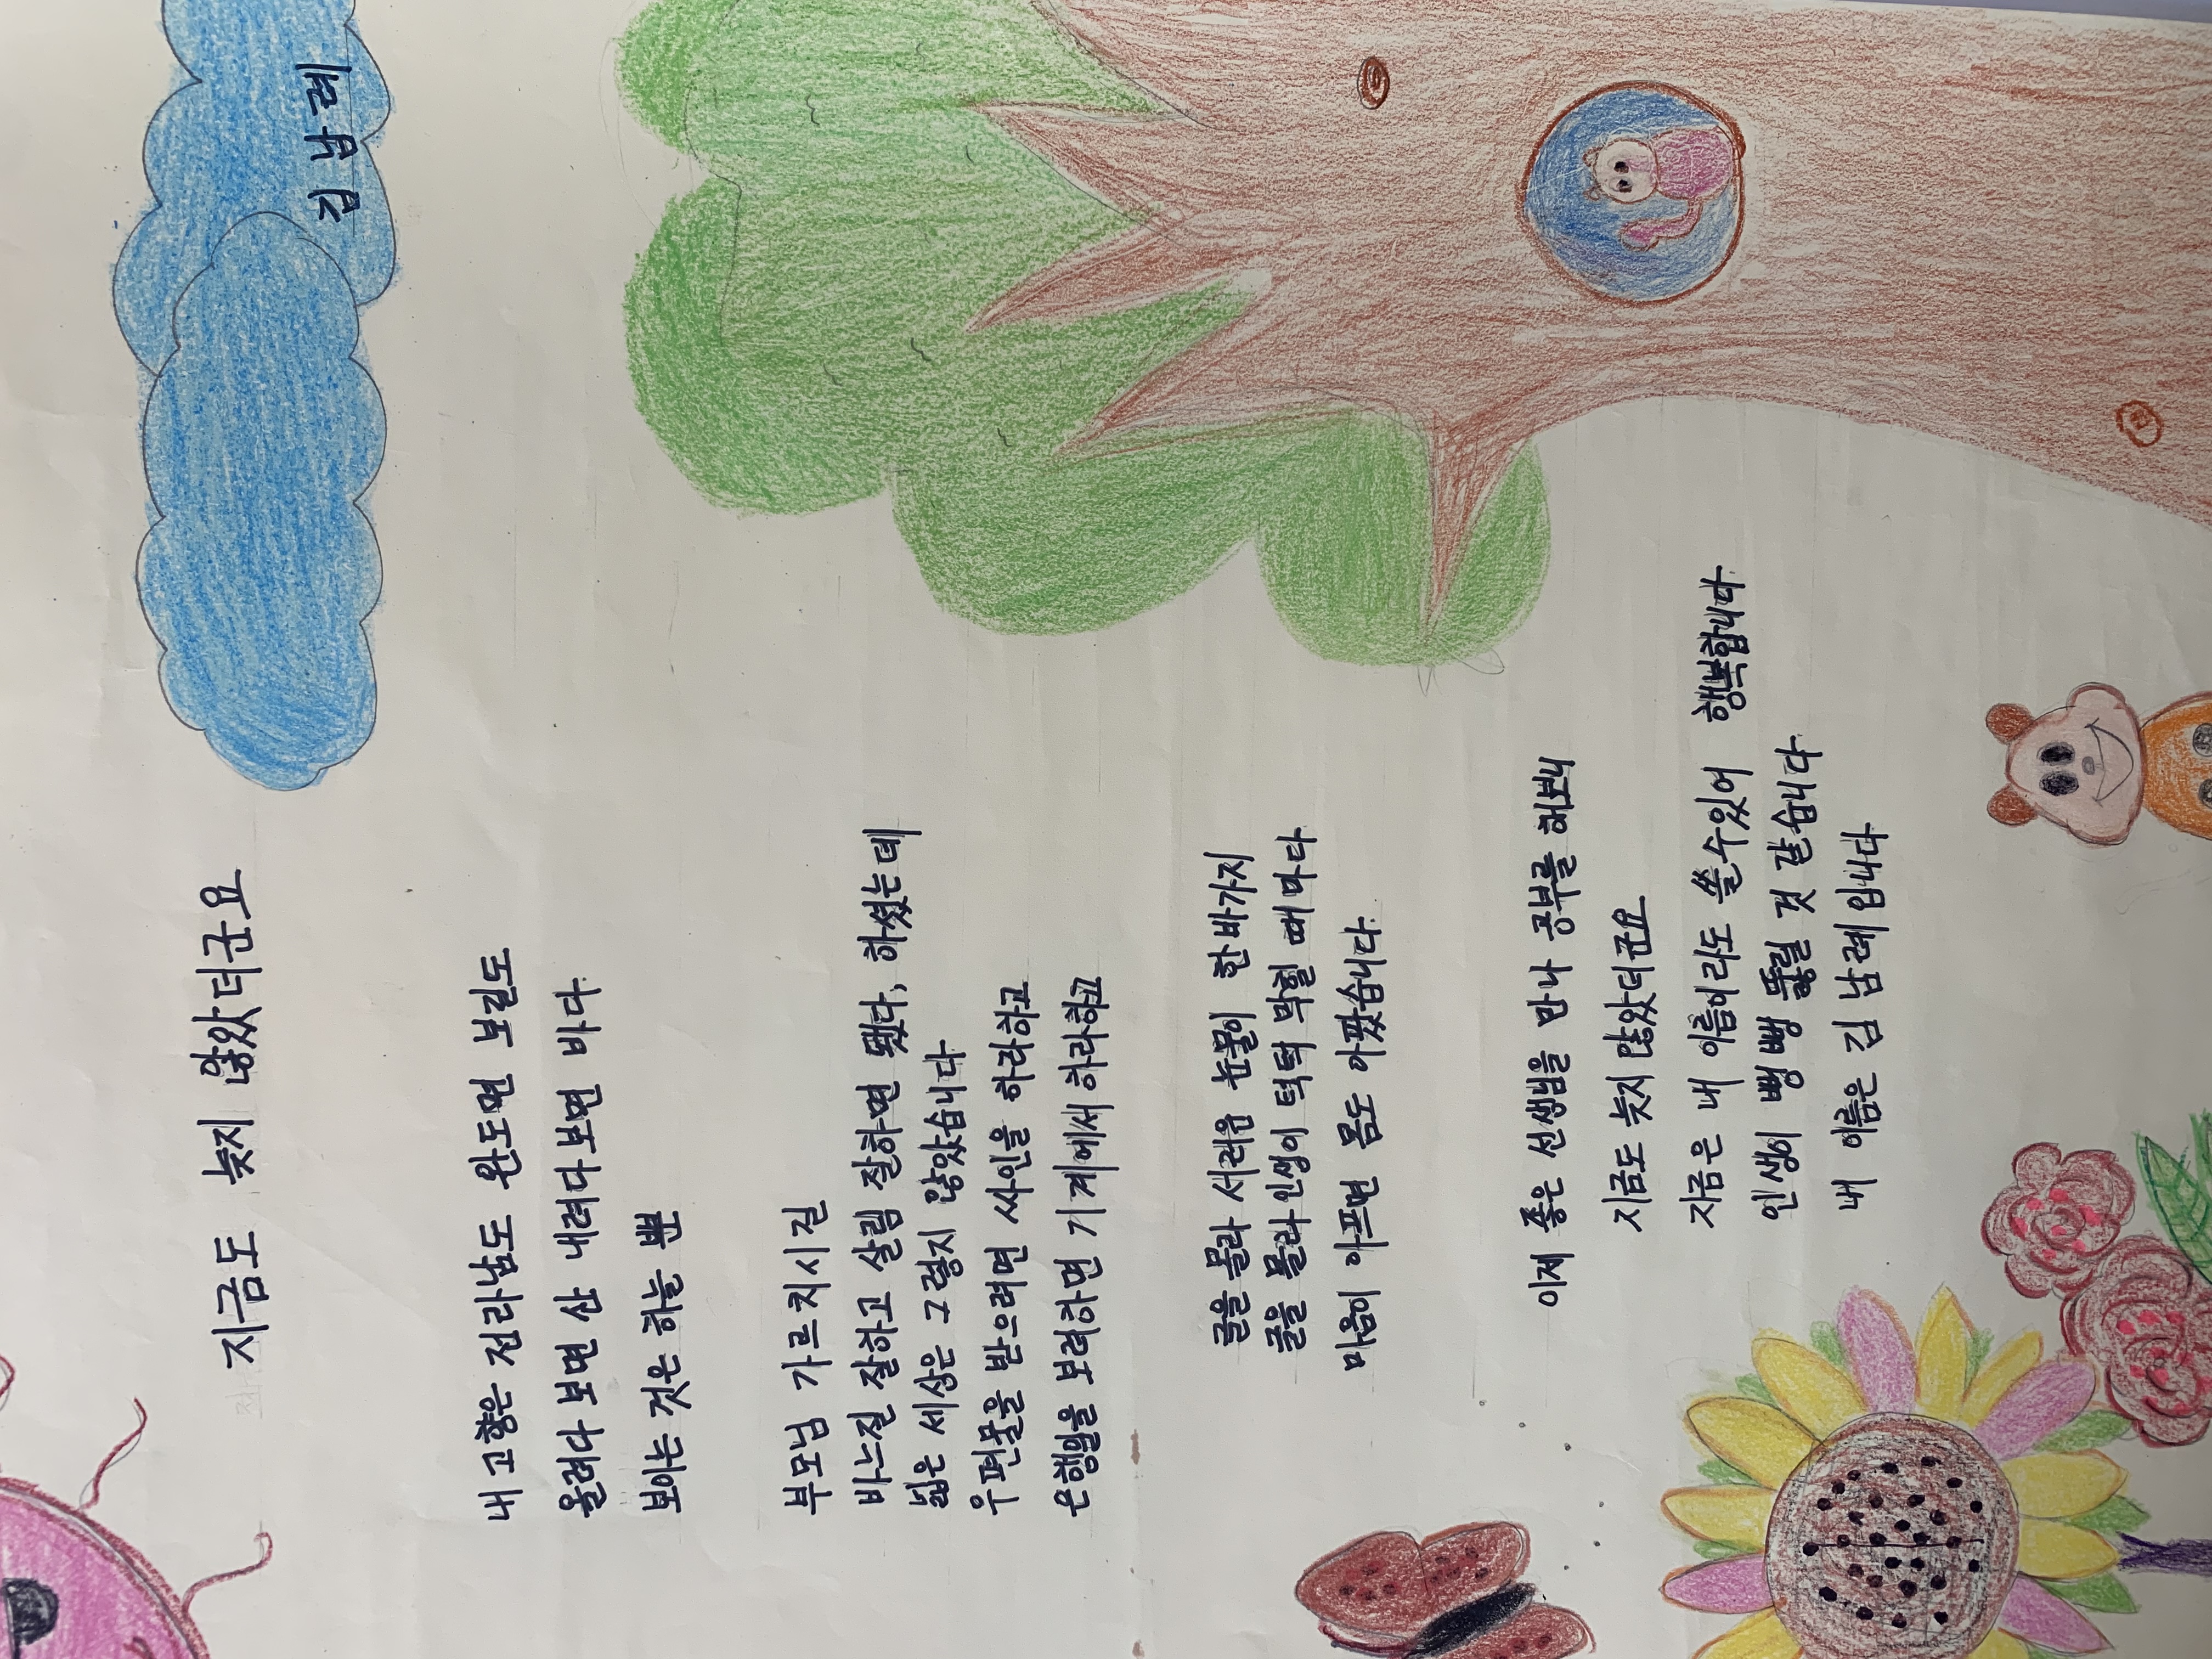 지금도 늦지 않았더군요
김남례
내 고향은 전라남도 완도면 보길도
올려다 보면 산 내려다보면 바다
보이는 것은 하늘 뿐
부모님 가르치시길
바느질 잘하고 살림 잘하면 됐다, 하셨는데
넓은 세상은 그렇지 않았습니다
우편물을 받으려면 싸인을 하라하고
은행일을 보려하면 기계에서 하라하고
글을 몰라 서러움 눈물이 한바가지
글을 몰라 인생이 턱턱 막힐 때마다
마음이 아프면 몸도 아팠습니다.
이제 좋은 선생님을 만나 공부를 해보니
지금도 늦지 않았더군요
지금은 내 이름이라도 쓸수있어 행복합니다
인생이 뻥뻥 뚫릴 것 같습니다
내 이름은 김남례입니다